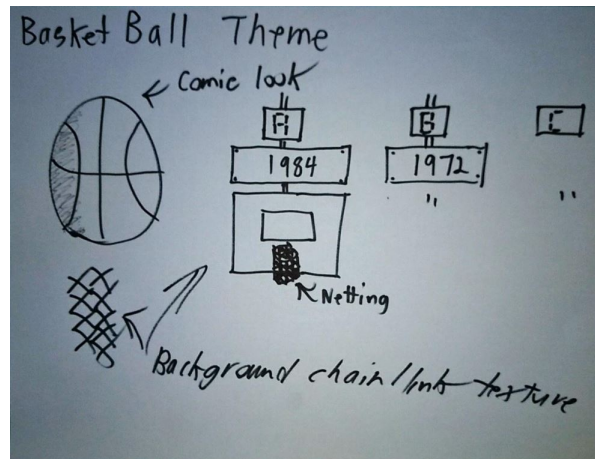 Basket Ball Theme
Comic look
A B C
1984 1972
" "
Netting
Background chain/link texture